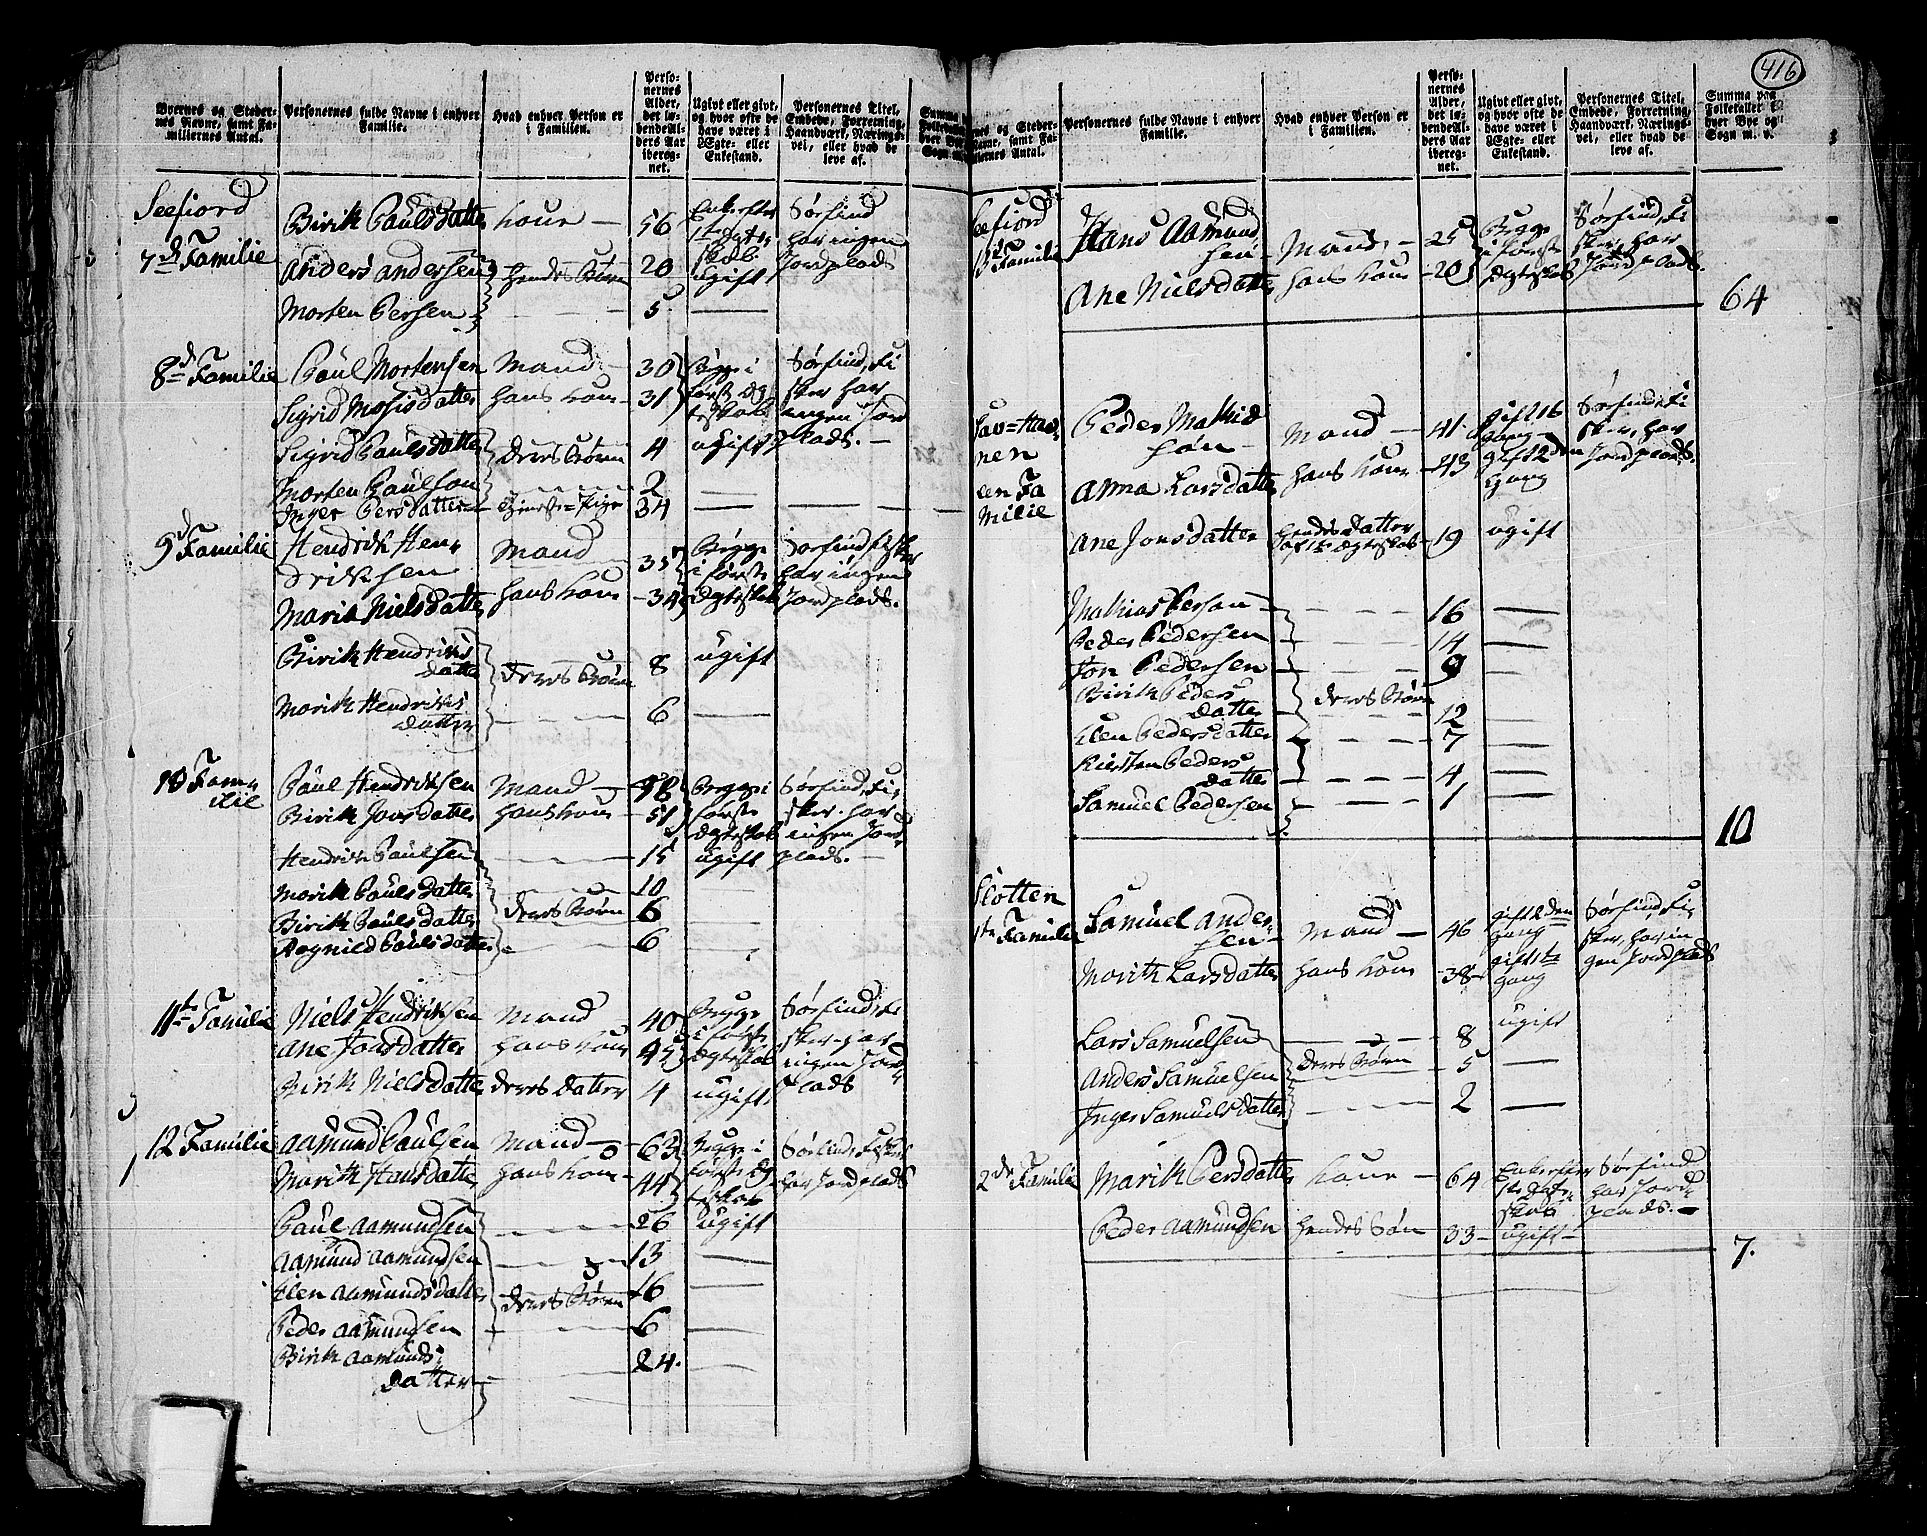 416
Byernes og Steder-
nes Navne, samt Fa-
miliernes Antal.
Personernes fulde Navne i enhver
Familie.
Hvad enhver Person er
i Familien.
Perso-
nernes
Alder,
det lø-
bende Al-
ders Aar
ibereg-
net.
Ugivt eller givt,
og hvor ofte de
have været i
Egte- eller
Enkestand.
Personernes Titel,
Embede, Forretning,
Haandværk, Nærings-
vei, eller hvad de
leve af.
Seefiord
7de Familie
Birith Paulsdatter Kone — 56 Enke efter 1ste Ægteskab Sørfind har ingen Jordplads
Anders Andersen hendes Børn 20 ugift
Morten Persen — 5 —
8de Familie
Paul Mortensen Mand — 30 Begge i første Ægteskab Sørfind, Fisker har ingen Jordplads. —
Sigrid Mosisdatter hans Kone 31
Sigrid Paulsdatter deres Børn 4 ugift
Morten Paulson — 2 —
Inger Persdatter — Tieneste-Pige 34 —
9de Familie
Hendrik Hen-
driksen Mand 35 Begge i første Ægteskab Sørfind, Fisker har ingen Jordplads.
Marit Nielsdatter hans Kone — 34
Birith Hendriks
datter deres Børn 8 ugift
Marith Hendriks
datter — 6 —
10 Fami-
lie
Paul Hendriksen Mand — 48 Begge i første Ægteskab Sørfind, Fisker har ingen Jordplads. —
Birith Jonsdatter hans Kone — 51
Hendrik Paulsen — 15 ugift
Marith Paulsdatter — 10 —
Birith Paulsdatter deres Børn 6 —
Ragnild Paulsdatter — 6 —
11te Familie
Niels Hendriksen Mand 40 Begge i første Ægteskab Sørfind, Fisker har ingen Jordplads
Ane Jonsdatter hans Kone 45
Birith Nielsdatter deres Datter 4 ugift
12 Familie
Aamund Paulsen Mand — 63 Begge i første Ægteskab Sørfind, Fisker har Jordplads
Marith Hansdatter hans Kone — 44
Paul Aamundsen — 26 ugift
Aamund Aamundsen — 13 —
Elen Aamundsdatter deres Børn 16 —
Peder Aamundsen — 6 —
Birith Aamunds-
datter — 24.
Personernes fulde Navne i enhver
Familie.
Hvad enhver Person er
i Familien.
Perso-
nernes
Alder,
det lø-
bende Al-
ders Aar
ibereg-
net.
Ugivt eller givt,
og hvor ofte de
have været i
Egte- eller
Enkestand.
Personernes Titel,
Embede, Forretning,
Haandværk, Nærings-
vei, eller hvad de
leve af.
Summa paa
Folketallet i
hver Bye og
Sogn m. v.
Seefiord
Familie
Hans Aamund
sen Mand — 25 Begge i første Ægteskab Sørfind, Fisker, har Jordplads.
Ane Nielsdatter hans Kone — 20
64
nen
een Fa
milie
Peder Mathis
søn Mand — 41 gift 1te gang — Sørfind, Fisker, har Jordplads.
Anna Larsdatter hans Kone — 43 gift 2den Gang
Ane Jonsdatter hendes Datter af 1te Ægteskab — 19 ugift
Mathias Persøn — 16 —
Peder Pedersen — 14 —
Jon Pedersen — 9 —
Birith Peders
datter deres Børn 12 —
Elen Pedersdatter — 7 —
Kiersten Peders
datter — 4 —
Samuel Pedersen — 1 —
10
Slotten
1te Familie
Samuel Ander-
sen — Mand — 46 gift 2den gang Sørfind, Fisker, har ingen Jordplads
Marith Larsdatter hans Kone 38 gift 1te gang
Lars Samuelsen — 8 ugift
Anders Samuelsen deres Børn 5 —
Inger Samuelsdatter — 2 —
2de Familie
Marith Persdatter Kone — 64 Enke efter 1ste Ægteskab Sørfind har Jordplads. —
Peder Aamundsen hendes Søn 33 — ugift —
7.